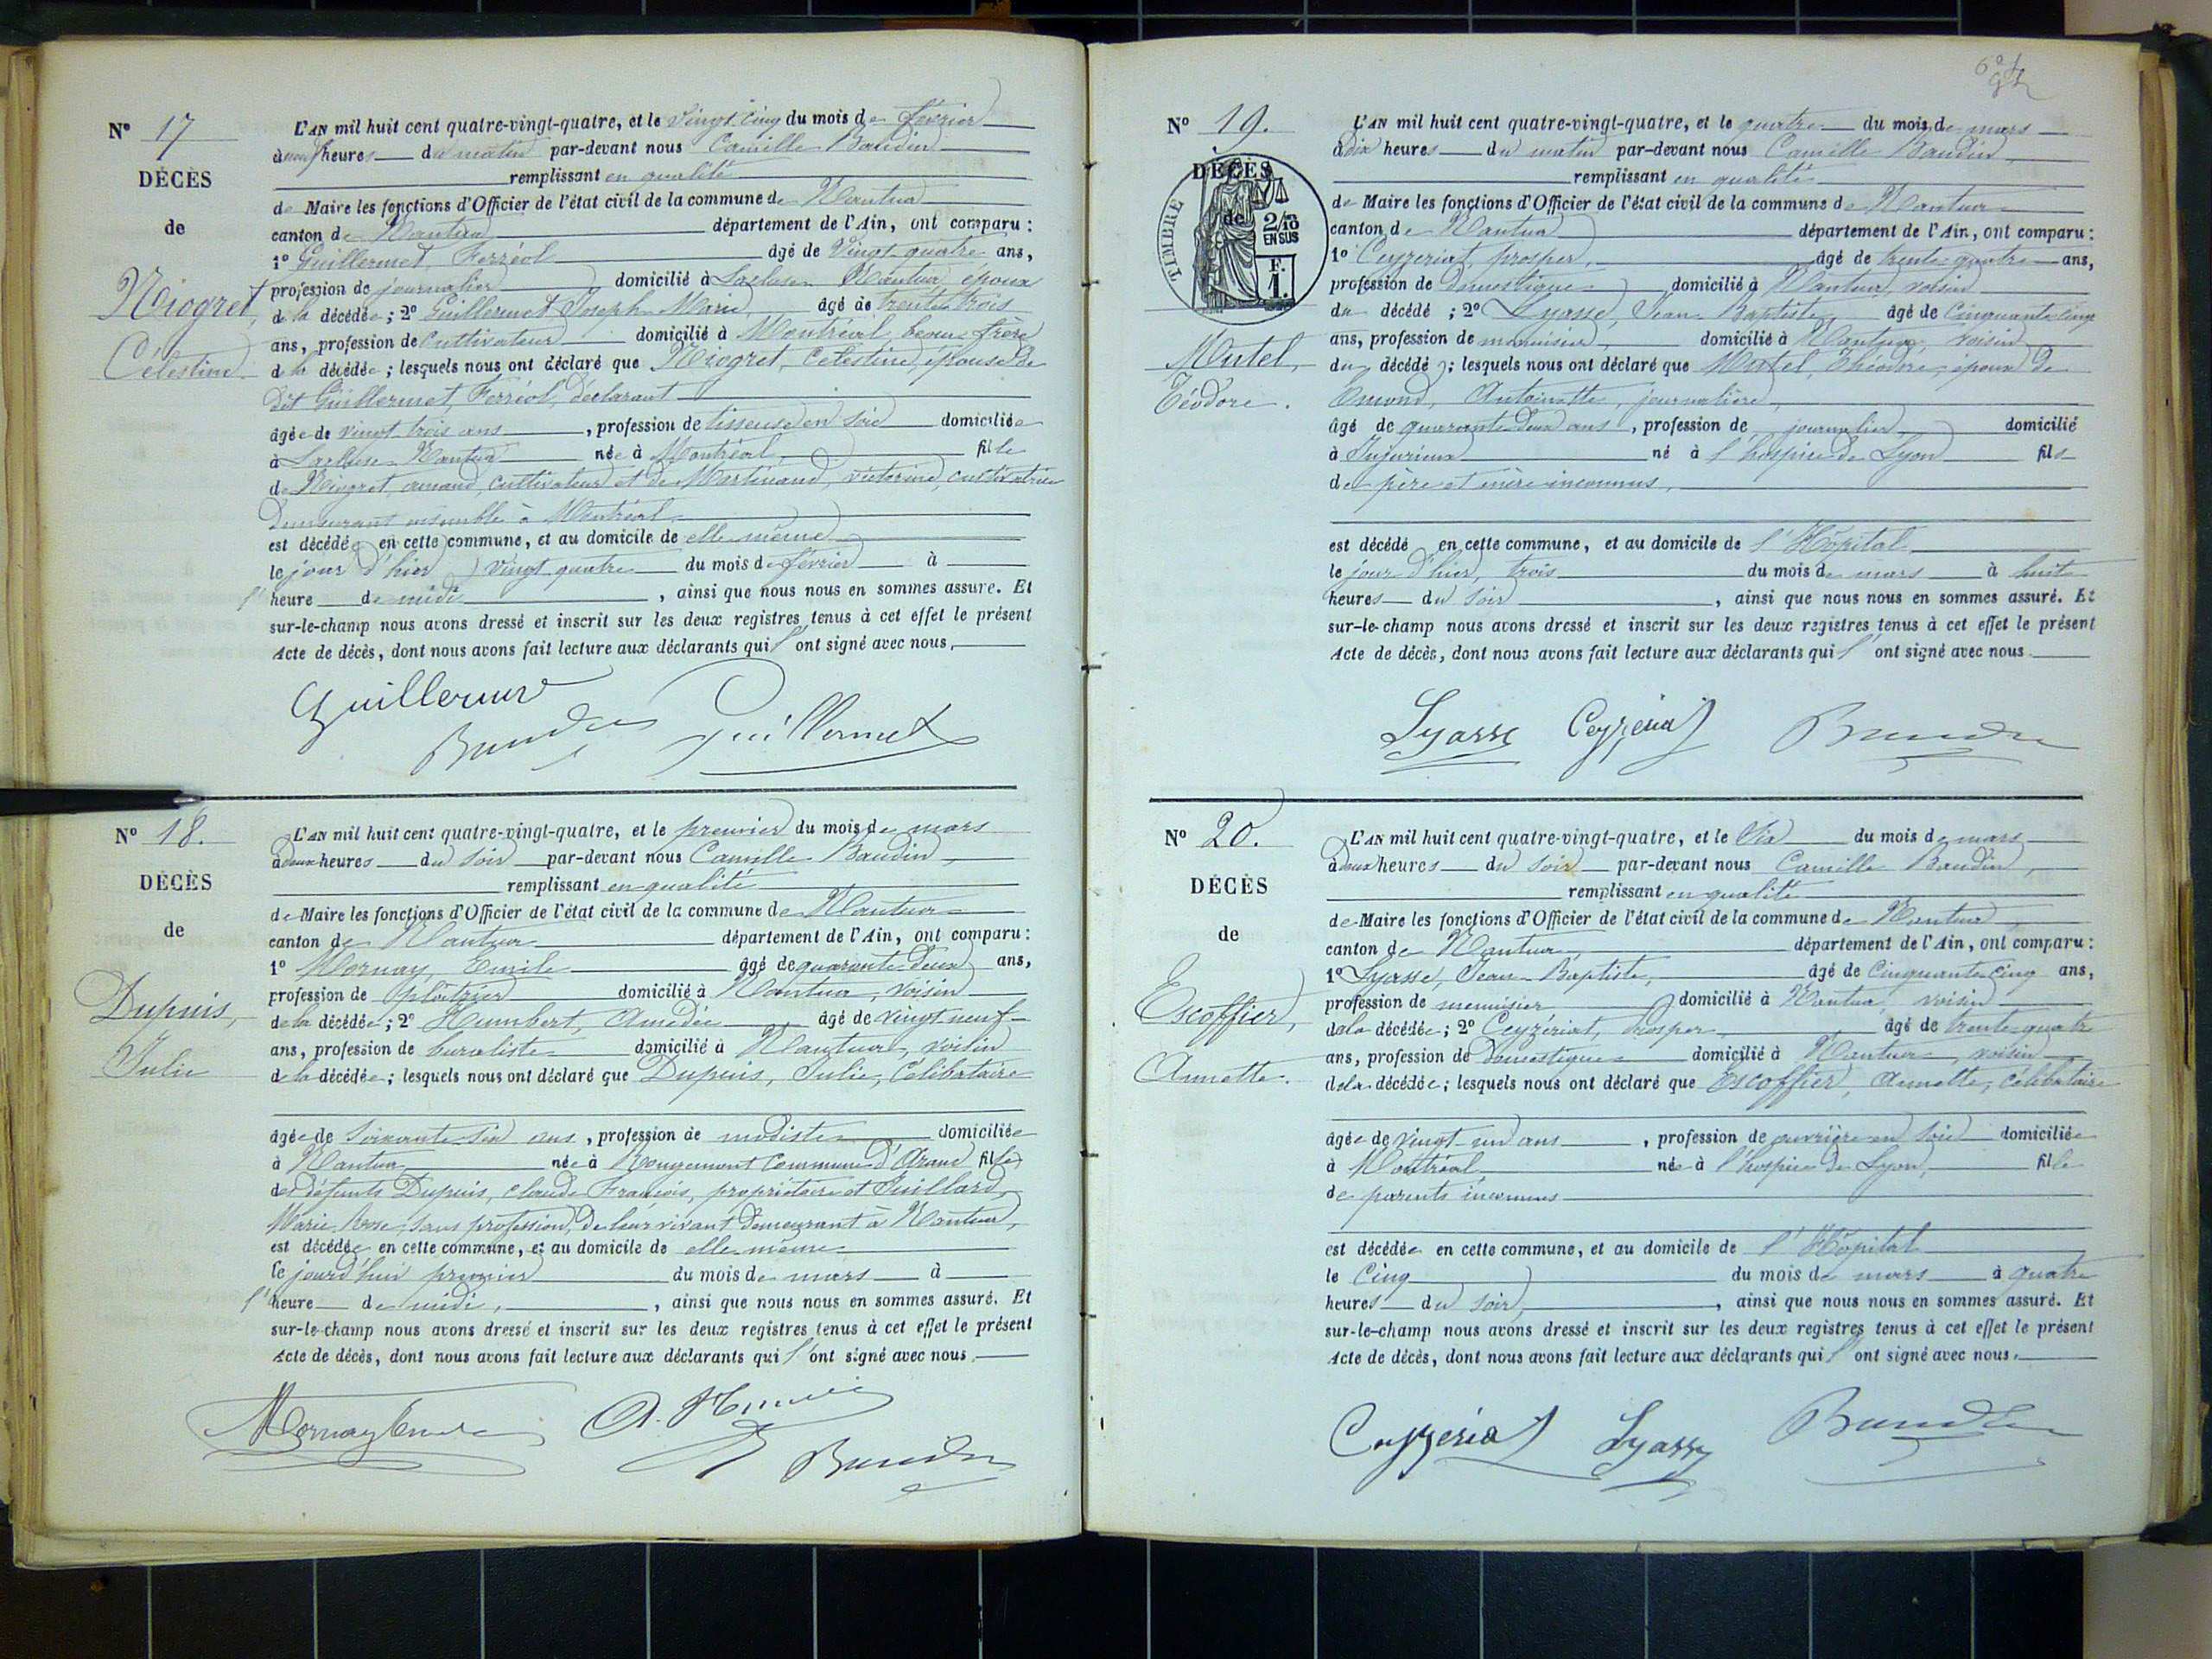 N° 17
DÉCÈS
de
Niogret,
Célestine
L'AN mil huit cent quatre-vingt-quatre, et le vingt cinq du mois de février
à neuf heures du matin par-devant nous Camille Baudin
remplissant en qualité
de Maire les fonctions d'Officier de l'état civil de la commune de Nantua
canton de Nantua département de l'Ain, ont comparu :
1° Guillermet, Ferréol âgé de vingt-quatre ans,
profession de journalier domicilié à Lacluse Nantua époux
de la décédée ; 2° Guillermet Joseph Marie, âgé de trente trois
ans, profession de cultivateur domicilié à Montréal, beau-frère
de la décédée ; lesquels nous ont déclaré que Niogret, Célestine, épouse de
dit Guillermet, Ferréol, déclarant
âgée de vingt-trois ans, profession de tisseuse en soie domiciliée
à Lacluse-Nantua née à Montréal fille
de Niogret, cultivateur et de Martinand, victorine, cultivatrice
demeurant ensemble à Montréal
est décédée en cette commune, et au domicile de elle même
le jour d'hier vingt quatre du mois de février à
l'heure de midi, ainsi que nous nous en sommes assuré. Et
sur-le-champ nous avons dressé et inscrit sur les deux registres tenus à cet effet le présent
Acte de décès, dont nous avons fait lecture aux déclarants qui l'ont signé avec nous.
Guillermet
Baudin Guillermet
N° 18.
DÉCÈS
de
Dupuis,
Julie
L'AN mil huit cent quatre-vingt-quatre, et le premier du mois de mars
à deux heures du soir par-devant nous Camille Baudin,
remplissant en qualité
de Maire les fonctions d'Officier de l'état civil de la commune de Nantua
canton de Nantua département de l'Ain, ont comparu :
1° Mornay, Emile âgé de quarante deux ans,
profession de plâtrier domicilié à Nantua, voisin
de la décédée ; 2° Humbert, Amédée âgé de vingt neuf
ans, profession de buraliste domicilié à Nantua, voisin
de la décédée ; lesquels nous ont déclaré que Dupuis, Julie, Célibataire
âgée de soixante-six ans, profession de modiste domiciliée
à Nantua née à Rougemont commune d'Aranc fille
des défunts Dupuis, claude François, propriétaire et Juillard,
Marie Rose, sans profession, de leur vivant demeurant à Nantua,
est décédée en cette commune, et au domicile de elle-même
le jourd'hui premier du mois de mars à
l'heure de midi, ainsi que nous nous en sommes assuré. Et
sur-le-champ nous avons dressé et inscrit sur les deux registres tenus à cet effet le présent
Acte de décès, dont nous avons fait lecture aux déclarants qui l'ont signé avec nous.
Mornay Emile A. Baudin
N° 19.
DÉCÈS
de
TIMBRE
2/10
EN SUS
F.
1.
Mutel,
Téodore.
L'AN mil huit cent quatre-vingt-quatre, et le quatre du mois de mars
à dix heures du matin par-devant nous Camille Baudin,
remplissant en qualité
de Maire les fonctions d'Officier de l'état civil de la commune de Nantua
canton de Nantua département de l'Ain, ont comparu :
1° Ceyzeriat, prosper, âgé de trente-quatre ans,
profession de Domestique domicilié à Nantua, voisin
du décédé ; 2° Lyasse, Jean-Baptiste, âgé de cinquante-cinq
ans, profession de menuisier, domicilié à Nantua, voisin
du décédé ; lesquels nous ont déclaré que Mutel, Théodore, époux de
Emond, Antoinette, journalière,
âgé de quarante deux ans, profession de journalier domicilié
à Jujurieux né à l'hospice de Lyon fils
de père et mère inconnus,
est décédé en cette commune, et au domicile de l'Hôpital
le jour d'hier, trois du mois de mars à huit
heures du soir, ainsi que nous nous en sommes assuré. Et
sur-le-champ nous avons dressé et inscrit sur les deux registres tenus à cet effet le présent
Acte de décès, dont nous avons fait lecture aux déclarants qui l'ont signé avec nous.
Lyasse Ceyzériat Baudin
N° 20.
DÉCÈS
de
Escoffier,
Annette.
L'AN mil huit cent quatre-vingt-quatre, et le six du mois de mars
à deux heures du soir par-devant nous Camille Baudin,
remplissant en qualité
de Maire les fonctions d'Officier de l'état civil de la commune de Nantua
canton de Nantua département de l'Ain, ont comparu :
1° Lyasse, Jean-Baptiste, âgé de cinquante cinq ans,
profession de menuisier domicilié à Nantua, voisin
de la décédée ; 2° Ceyzériat, Prosper, âgé de trente-quatre
ans, profession de Domestique domicilié à Nantua, voisin
de la décédée ; lesquels nous ont déclaré que Escoffier, Annette, célibataire
âgée de vingt-un ans, profession de ouvrière en soie domiciliée
à Montréal née à l'hospice de Lyon, fille
de parents inconnus
est décédée en cette commune, et au domicile de l'Hôpital
le cinq du mois de mars à quatre
heures du soir, ainsi que nous nous en sommes assuré. Et
sur-le-champ nous avons dressé et inscrit sur les deux registres tenus à cet effet le présent
Acte de décès, dont nous avons fait lecture aux déclarants qui l'ont signé avec nous.
Ceyzériat Lyasse Baudin